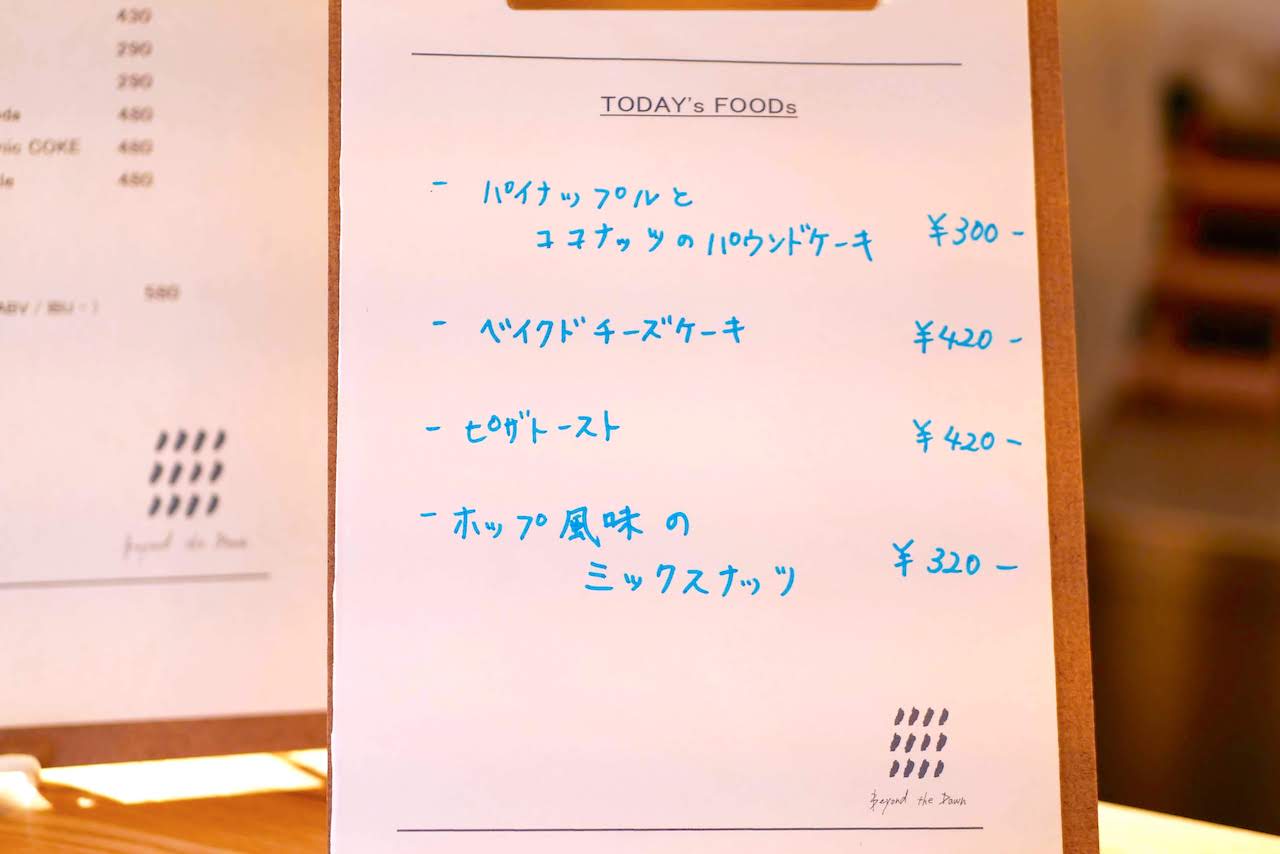 430
290
290
480
COKE 480
480
580
ABV / IBU - )
Beyond the Dawn
TODAY's FOODs
- パイナップルと
ココナッツのパウンドケーキ ¥300-
- ベイクドチーズケーキ ¥420-
- ピザトースト ¥420-
- ホップ風味の
ミックスナッツ ¥320-
Beyond the Dawn